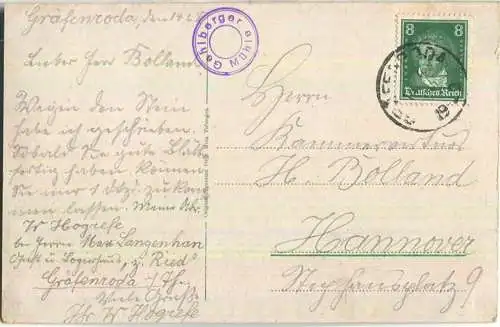 Gräfenroda, den 14.
Lieber Herr Bolland
Wegen den Stein
habe ich geschrieben.
Sobald Sie gute Bläd
fertig haben können
Sie mir 1 Dtz. zu kom
men lassen. Meine Adr.
W Hogrefe
bei Herrn Max Langenhan
Gast u. Logierhaus, z. Ried
Gräfenroda i/Th.
Viele Grüße
Ihr W Hogrefe
Gehlberger Mühle
8 8
Deutsches Reich
Herrn
Kammervirtuos
H. Bolland
Hannover
Stephansplatz 9